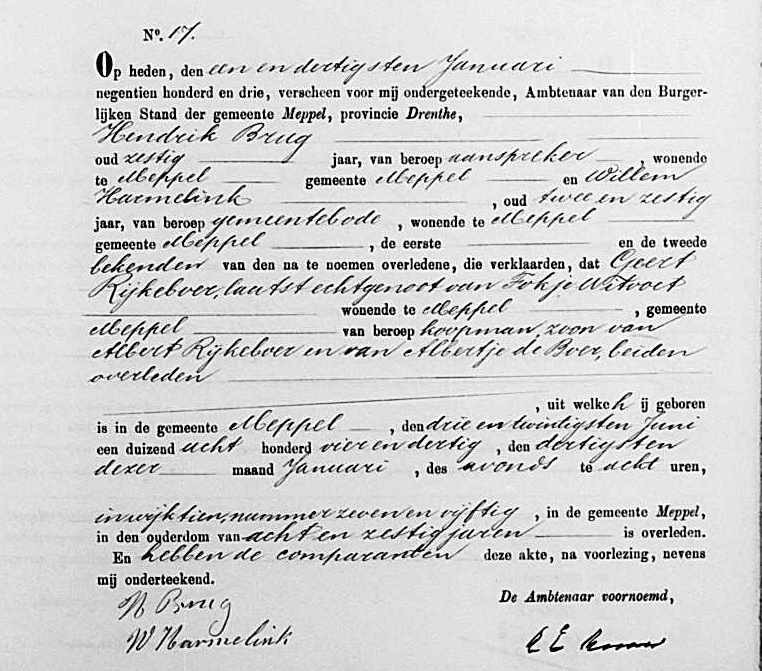 No. 17.
Op heden, den een en dertigsten Januari
negentien honderd en drie, verscheen voor mij ondergeteekende, Ambtenaar van den Burger-
lijken Stand der gemeente Meppel, provincie Drenthe,
Hendrik Brug
oud zestig jaar, van beroep aanspreker, wonende
te Meppel gemeente Meppel en Willem
Harmelink, oud twee en zestig
jaar, van beroep gemeentebode, wonende te Meppel
gemeente Meppel, de eerste en de tweede
bekenden van den na te noemen overledene, die verklaarden, dat Geert
Rijkeboer, laatst echtgenoot van Fokje Witvoet
wonende te Meppel, gemeente
Meppel van beroep koopman, zoon van
Albert Rijkeboer en van Albertje de Boer, beiden
overleden
, uit welke h ij geboren
is in de gemeente Meppel, den drie en twintigsten Juni
een duizend acht honderd vier en dertig, den dertigsten
dezer maand Januari, des avonds te acht uren,
in wijk tien, nummer zeven en vijftig, in de gemeente Meppel,
in den ouderdom van acht en zestig jaren is overleden.
En hebben de comparanten deze akte, na voorlezing, nevens
mij onderteekend.
H Brug
De Ambtenaar voornoemd,
W Harmelink